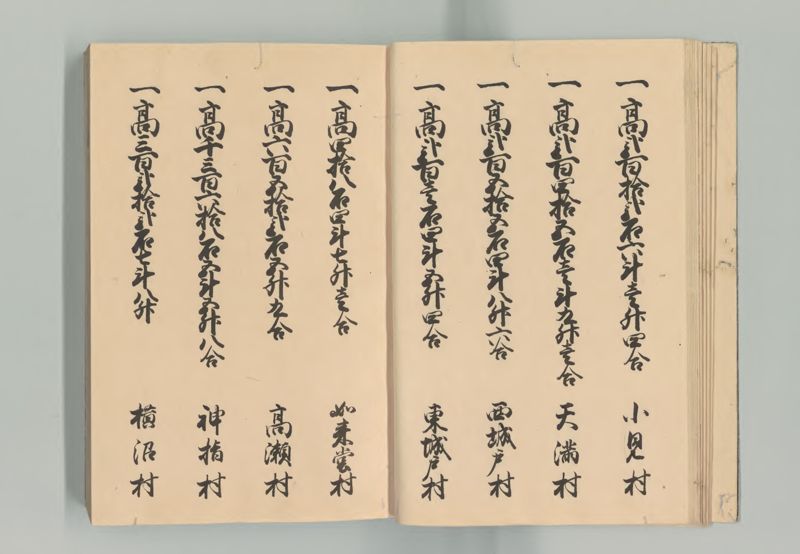 一高弐百拾弐石六斗壱升四合 小見村
一高弐百四拾五石壱斗九升壱合 天満村
一高弐百五拾五石四斗八升六合 西城戸村
一高弐百壱石四斗五升四合 東城戸村
一高四拾八石四斗七升壱合 如来堂村
一高六百五拾弐石五升九合 高瀬村
一高千三百六拾八石五斗五升八合 神指村
一高三百弐拾弐石七斗八升 横沼村